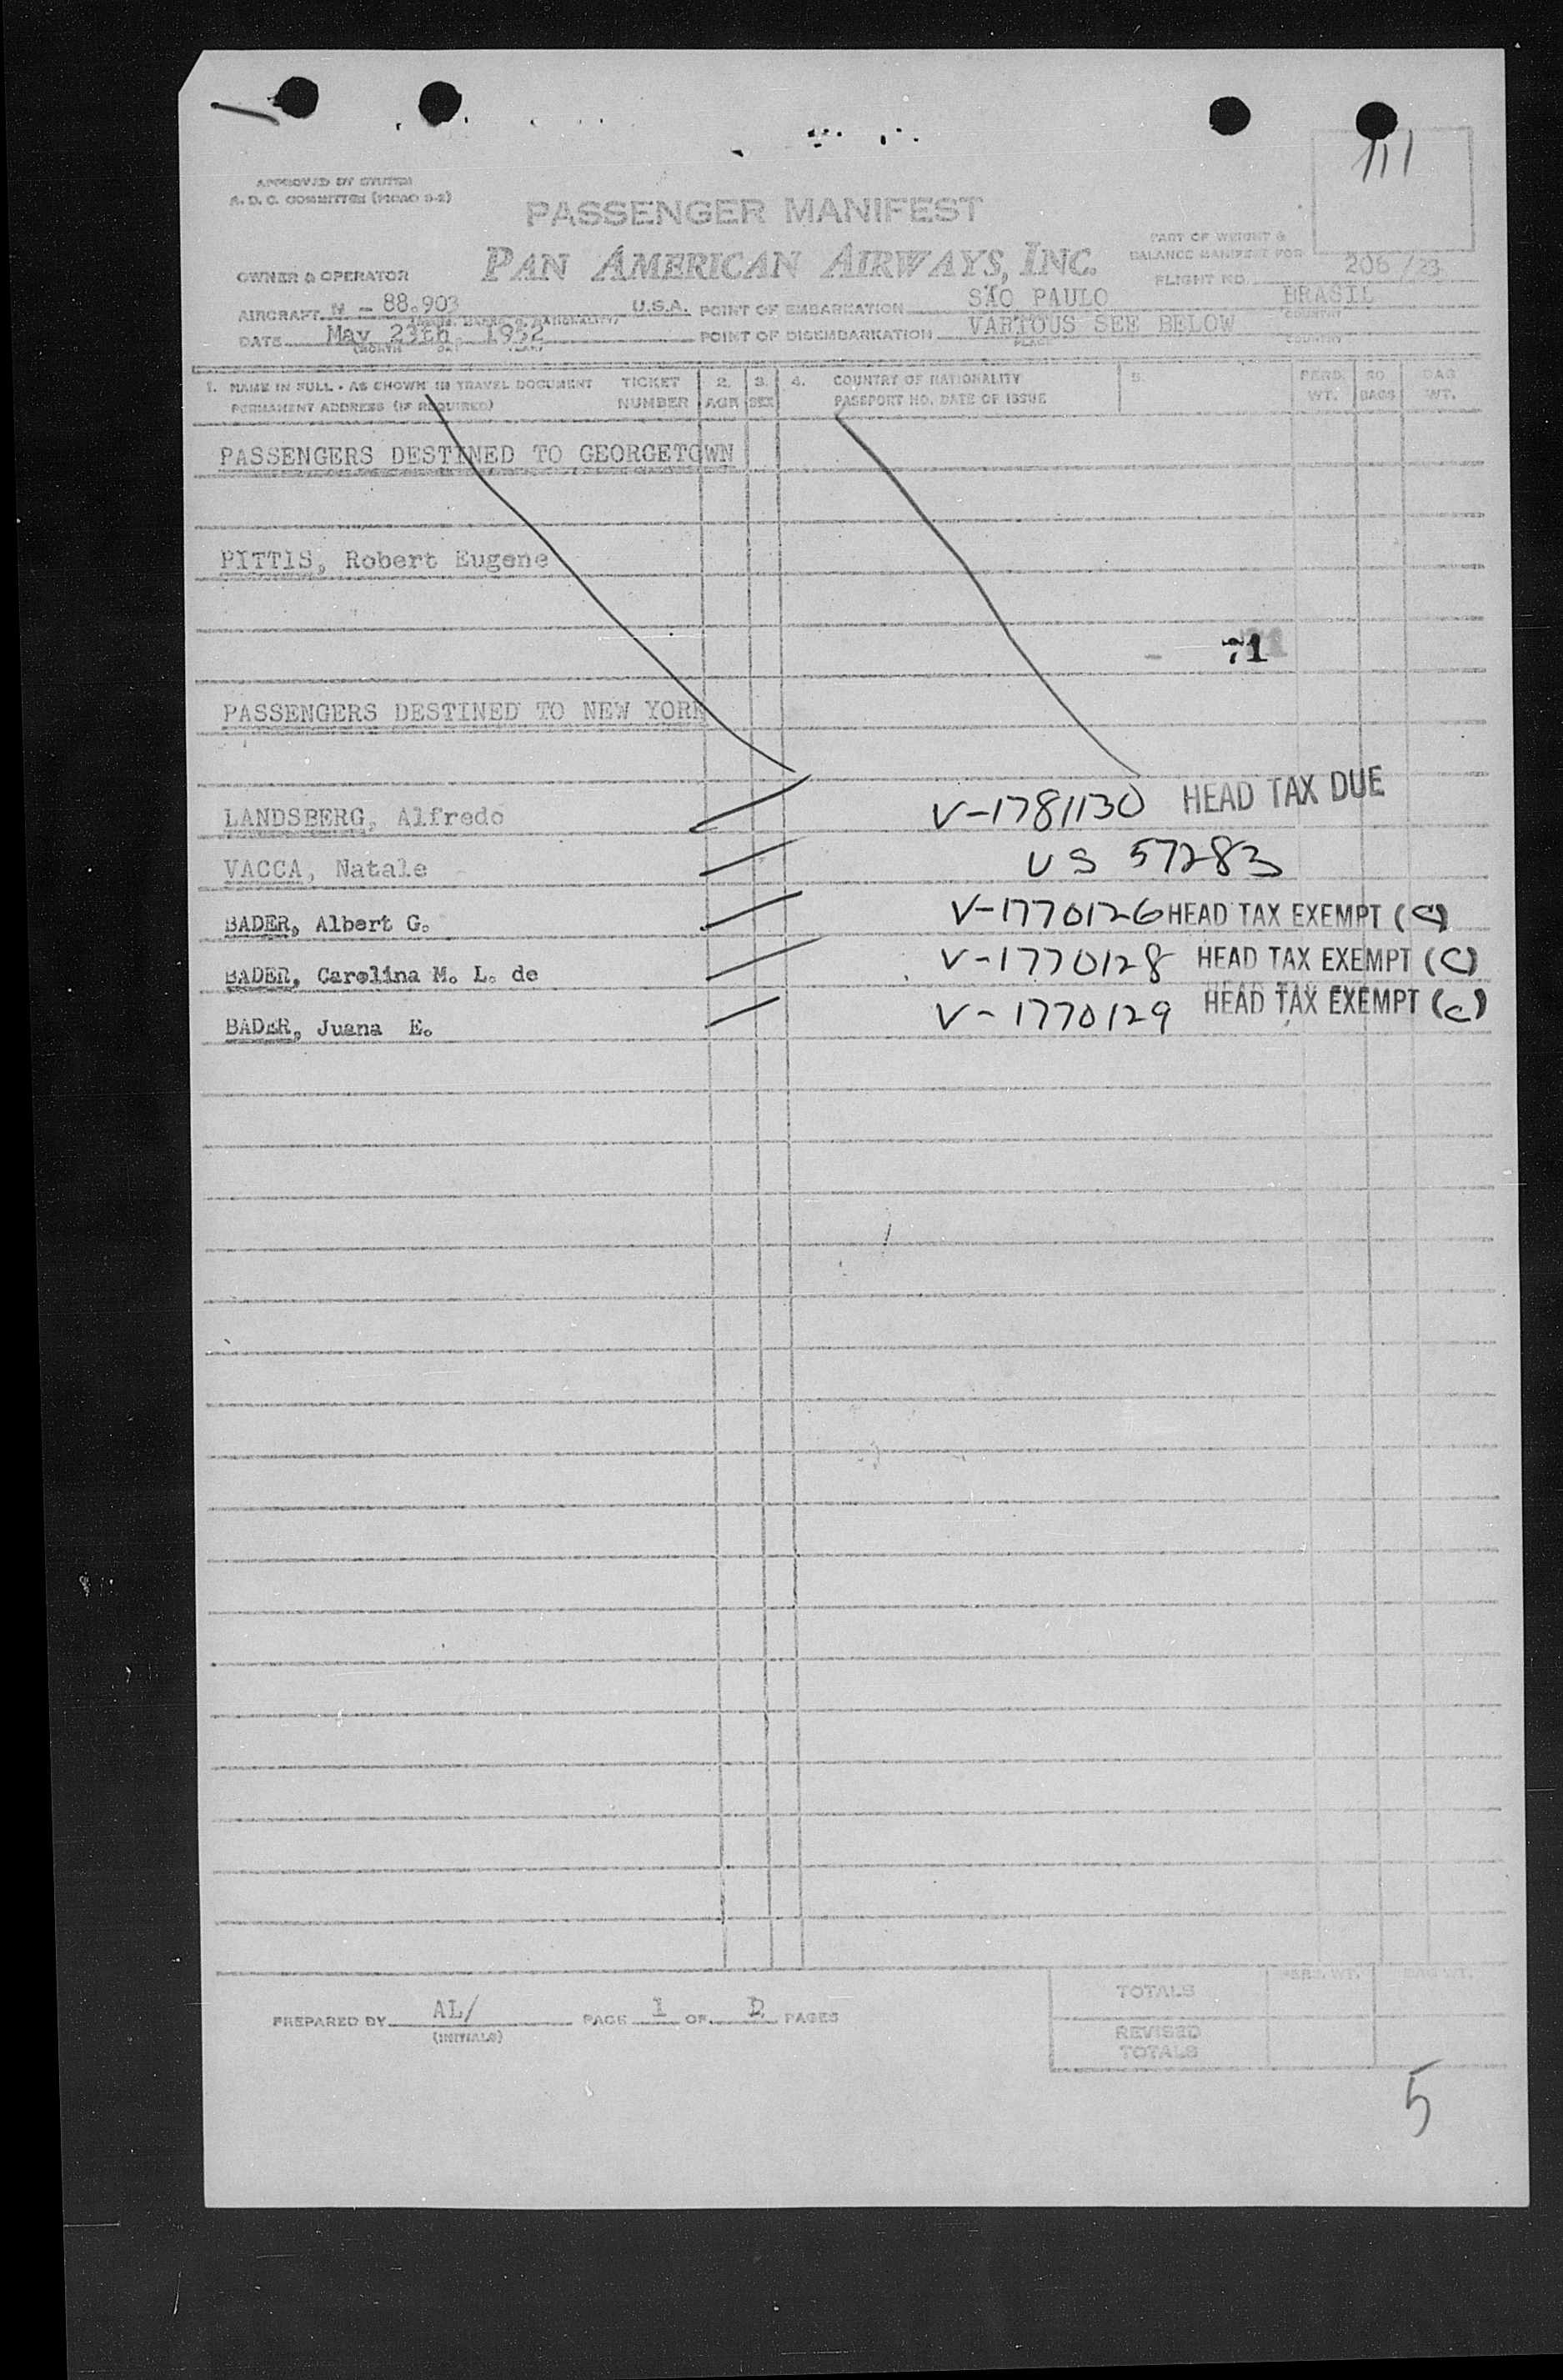 111
APPROVED BY SYSTEM
A. D. C. COMMITTEE (PICAO S-2)
PASSENGER MANIFEST
PAN AMERICAN AIRWAYS, INC.
PART OF WEIGHT &
BALANCE MANIFEST FOR
FLIGHT NO. 206/23
OWNER & OPERATOR
AIRCRAFT N - 88.903 U.S.A. POINT OF EMBARKATION SÃO PAULO BRASIL
COUNTRY
DATE May 23th, 1952 POINT OF DISEMBARKATION VARIOUS SEE BELOW
(MONTH DAY YEAR) PLACE COUNTRY
1. NAME IN FULL - AS SHOWN IN TRAVEL DOCUMENT TICKET 2. 3. 4. COUNTRY OF NATIONALITY 5. PERS. NO. BAG
PERMANENT ADDRESS (IF REQUIRED) NUMBER AGE SEX PASSPORT NO. DATE OF ISSUE WT. BAGS WT.
PASSENGERS DESTINED TO GEORGETOWN
PITTIS, Robert Eugene
71
PASSENGERS DESTINED TO NEW YORK
LANDSBERG, Alfredo V-1781130 HEAD TAX DUE
VACCA, Natale US 57283
BADER, Albert G. V-1770126 HEAD TAX EXEMPT (C)
BADER, Carolina M. L. de V-1770128 HEAD TAX EXEMPT (C)
BADER, Juana E. V-1770129 HEAD TAX EXEMPT (C)
PERS. WT. BAG WT.
TOTALS
PREPARED BY AL/ PAGE 1 OF PAGES
(INITIALS)
REVISED
TOTALS
5